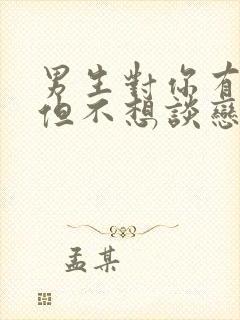 男生對你有
但不想談戀
孟某